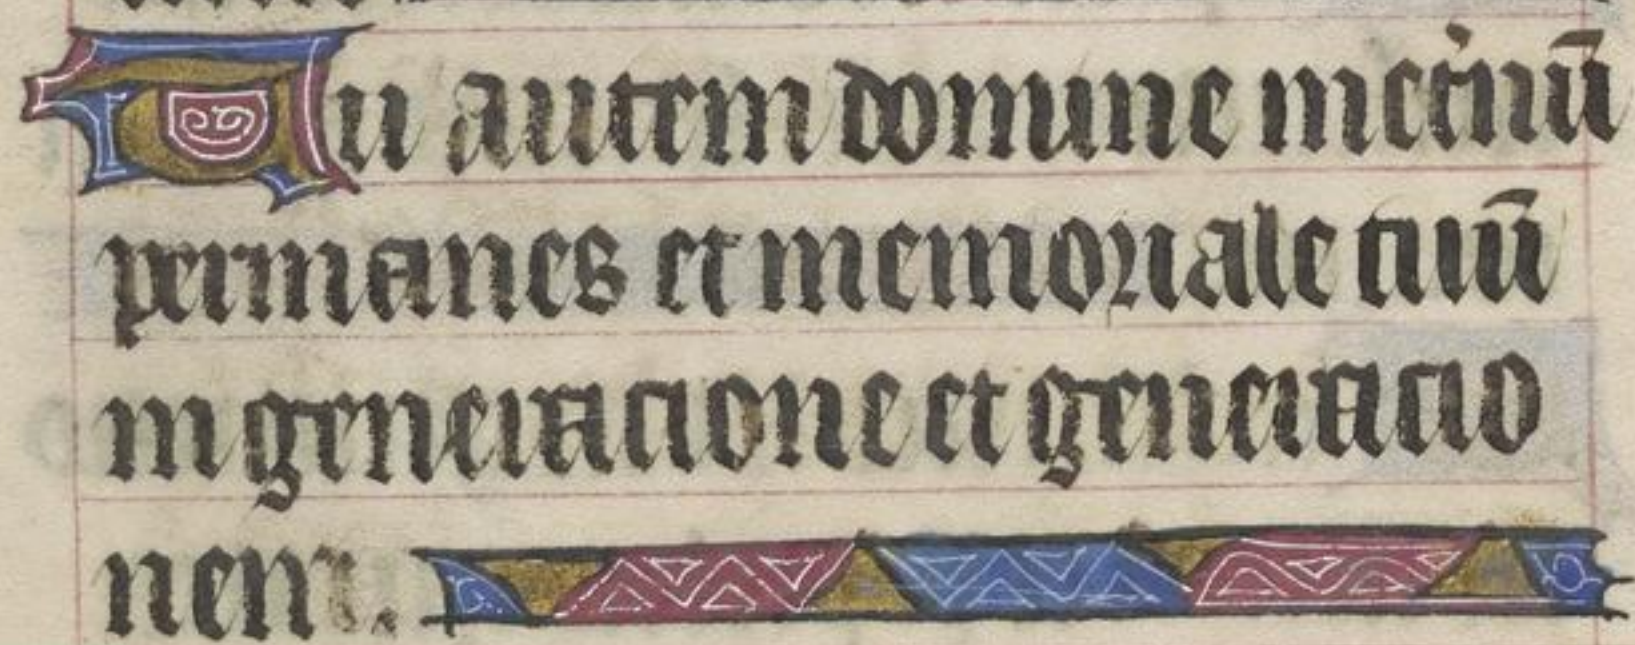 Tu autem domine meternū
permanes et memoriale tuū
in generatione et generatio
nem.